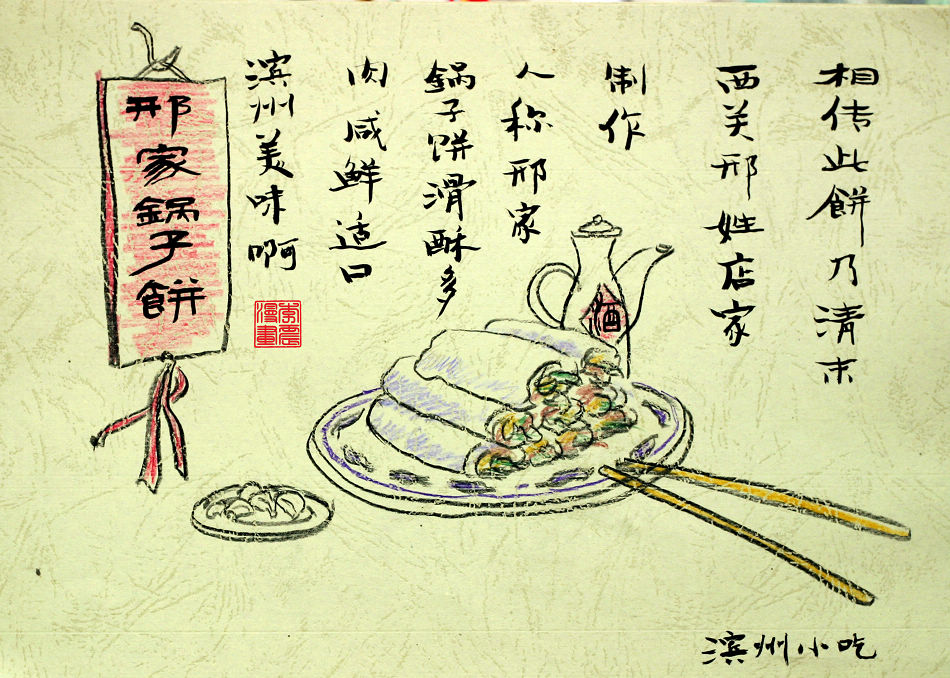 相传此餅乃清末
西关邢姓店家
制作
人称邢家
鍋子饼滑酥多
肉咸鲜适口
滨州美味啊
漫畫
邢家鍋子餅
酒
滨州小吃